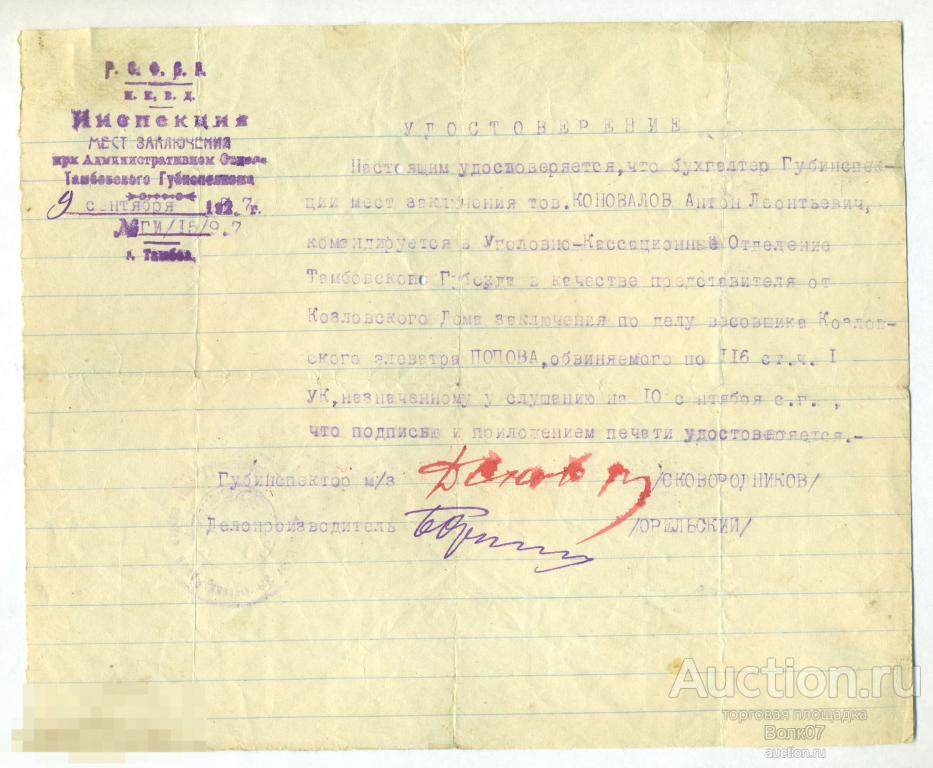 Р. С. Ф. С. Р.
Н. К. В. Д.
Инспекция
МЕСТ ЗАКЛЮЧЕНИЯ
при Административном Отделе
Тамбовского Губисполкома
9 сентября 1927 г.
№ ГИ/15/9.7
г. Тамбов.
УДОСТОВЕРЕНИЕ
Настоящим удостоверяется, что бухгалтер Губинспек-
ции мест заключения тов. КОНОВАЛОВ Антон Леонтьевич,
командируется в Уголовно-Кассационные Отделение
Тамбовского Губсуда в качестве представителя от
Козловского Дома заключения по делу весовщика Козлов-
ского элеватра ПОПОВА, обвиняемого по 116 ст.ч. I
УК, назначенному у слушанию на 10 с нтября с.г. ,
что подписью и приложением печати удостоверяется.-
Губинспектор м/з /СКОВОРОДНИКОВ/
Делопроизводитель /ОРЕЛЬСКИЙ/
Auction.ru
торговая площадка
Волк07
auction.ru